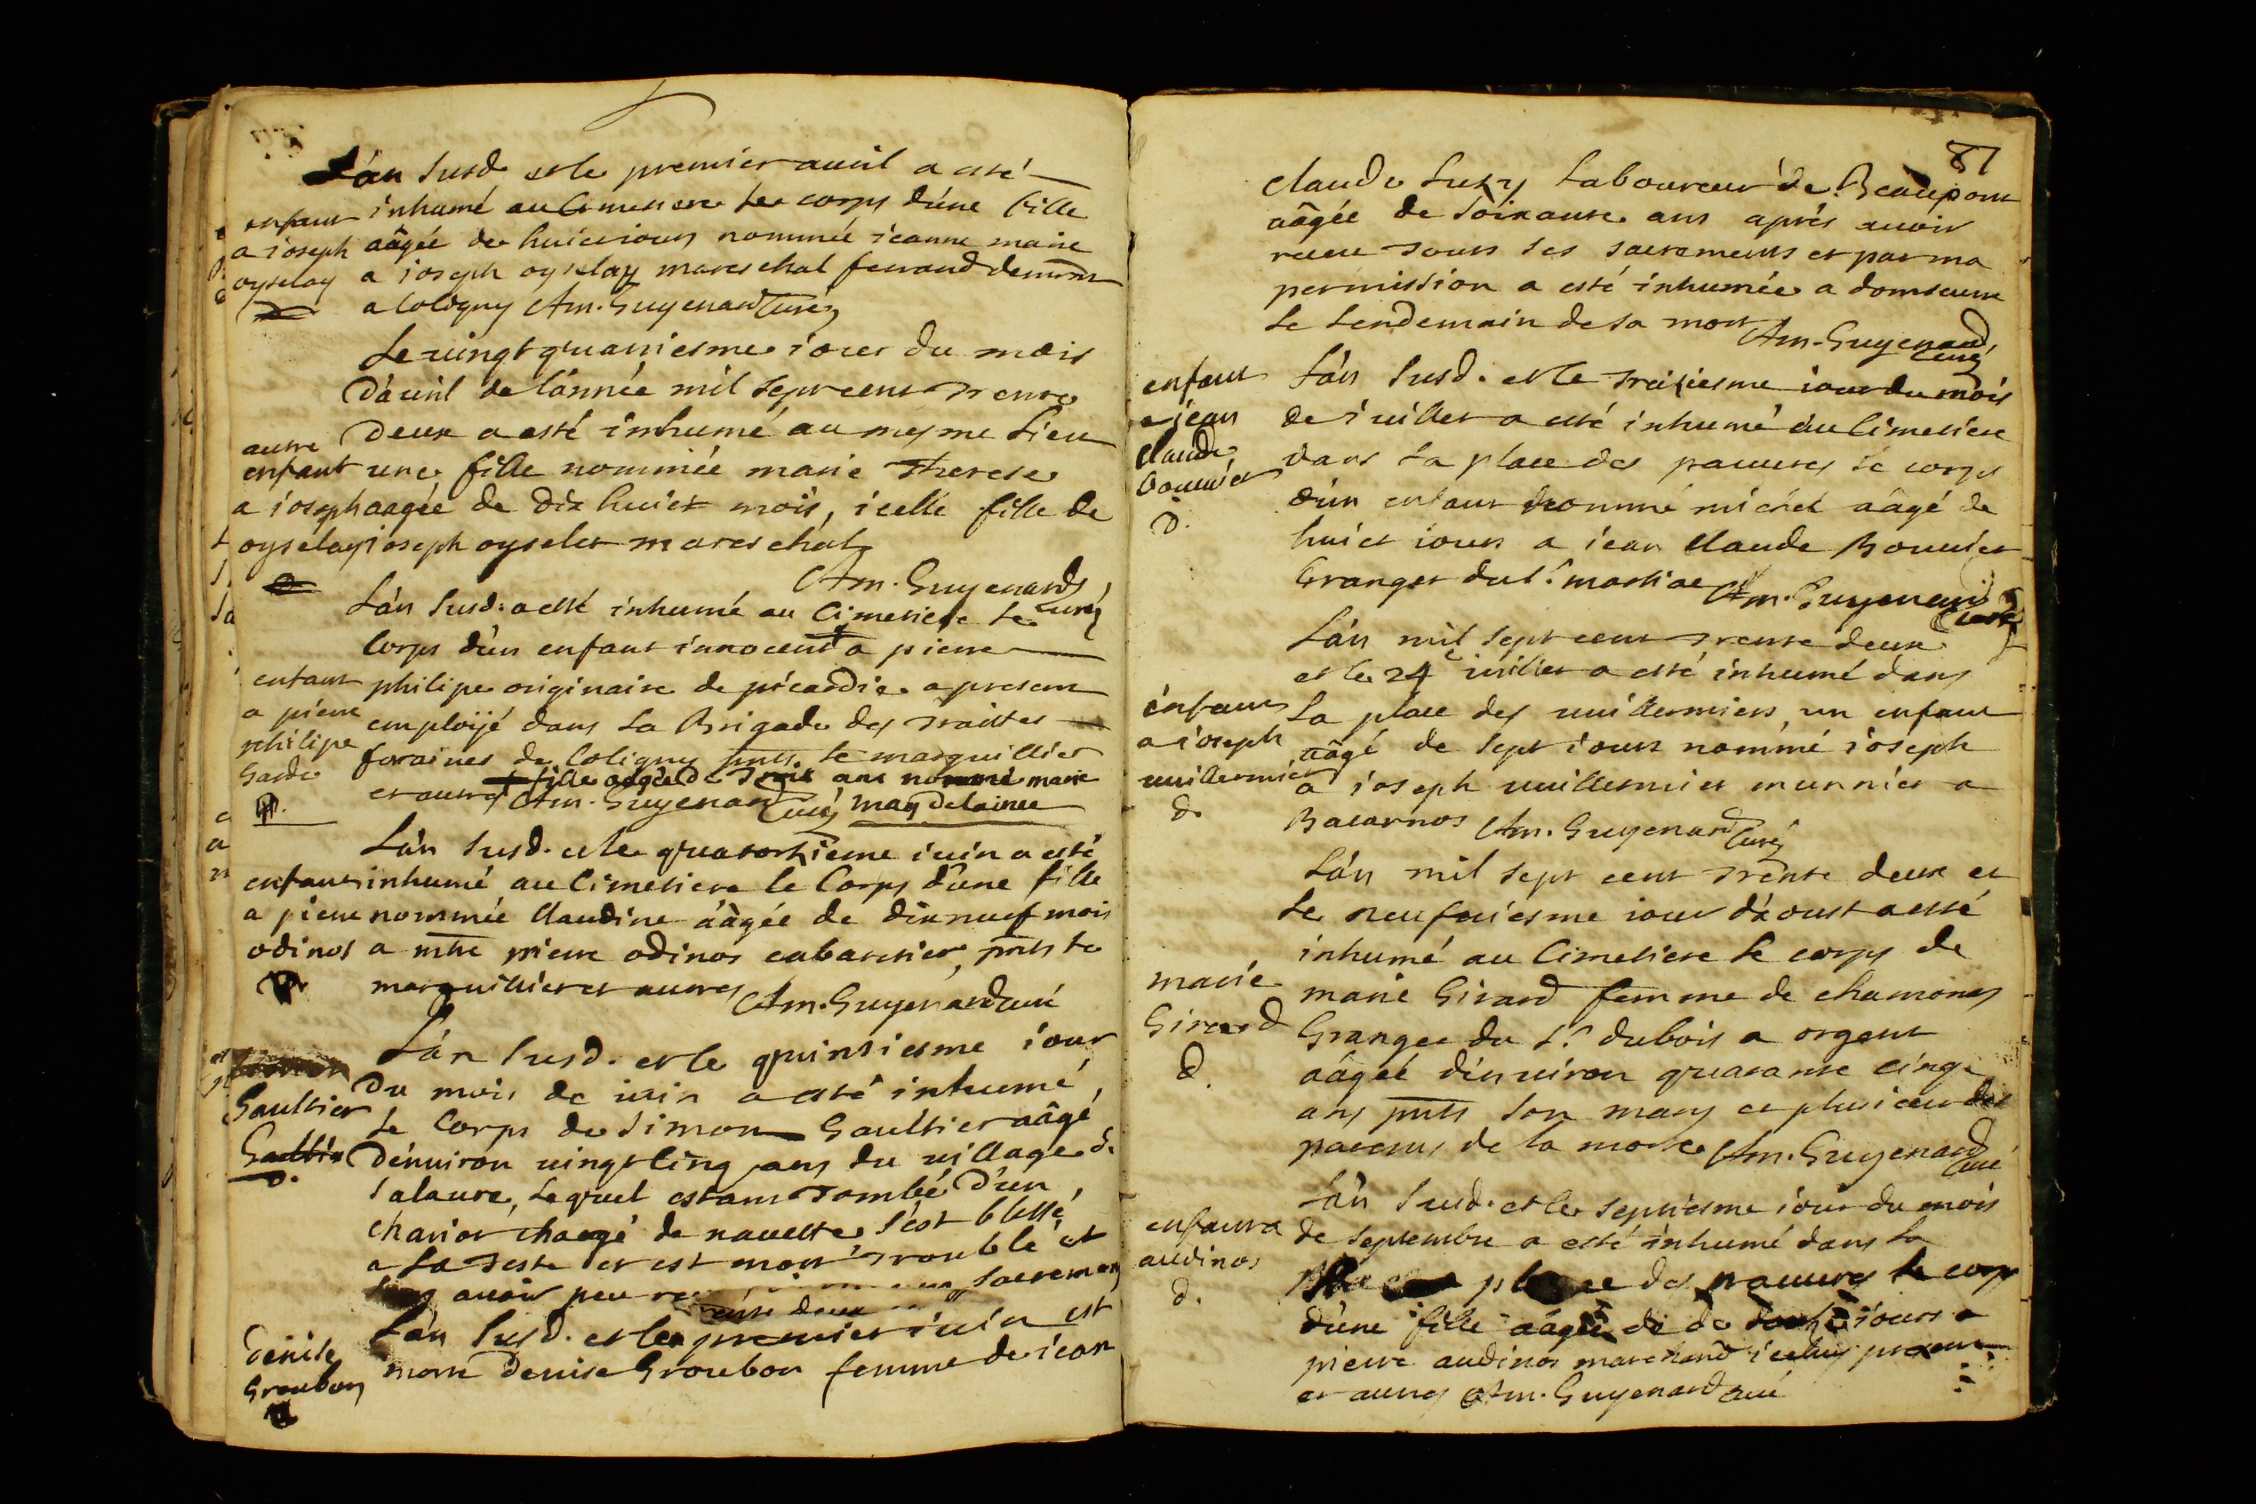 L'an susd et le premier auril a esté
inhumé au Cimetiere le corps d'une fille
enfant
a ioseph
oyselay
aâgée de huict iours nommée ieanne marie
a ioseph oyselay mareschal ferrand demrant
a Coligny Am. Guyenard Curé
Le vingt quatriesme iour du mois
d'auril de l'année mil sept cent trente
deux a esté inhumé au mesme lieu
autre
enfant
a ioseph
oyselay
une fille nommée marie Therese
aagée de dix huict mois, icelle fille de
ioseph oyselet mareschal
Am. Guyenard
Curé
L'an susd. a esté inhumé au Cimetiere le
Corps d'un enfant innocent a pierre
enfant
a pierre
philipe
Garde
philipe originaire de picardie a present
emploijé dans la Brigade des traittes
foraines de Coligny pnts. le marguillier
fille aagée de trois ans nommé marie
et autres Am. Guyenard Curé magdelaine
L'an susd. et le quatorsieme iuin a esté
enfant
a pierre
odinos
inhumé au Cimetiere le Corps d'une fille
nommée Claudine aâgée de dix neuf mois
a mtre pierre odinos cabaretier, pnts le
marguillier et autres Am. Guyenard curé
L'an susd. et le quinsiesme iour
du mois de iuin a esté inhumé
Gaultier
le Corps de Simon Gaultier aâgé
d'enuiron uingt cinq ans du uillage de
Salaure, lequel estant tombé d'un
chariot chargé de nauette s'est blessé
a la teste et est mort troublé et
auoir peu sacremens
trente deux
L'an susd. et le premier iuin est
Denise
Groubon
morte Denise Groubon femme de iean
87
Claude Laboureur de Beaupont
aâgée de soixante ans aprés auoir
receu tous ses sacrements et par ma
permission a esté inhumée a domseure
le lendemain de sa mort Am. Guyenard
Curé
enfant
a jean
Claude
bouuier
D.
L'an susd. et le treisiesme iour du mois
de iuillet a esté inhumé au Cimetiere
dans la place des pauures le corps
d'un enfant nommé michel aâgé de
huict iours a iean Claude Bouuier
Granger du Sr. Am. Guyenard
Curé
L'an mil sept cent trente deux
et le 24e iuillet a esté inhumé dans
enfant
a ioseph
uuillermier
d.
la place des uuillermiers, un enfant
aâgé de sept iours nommé ioseph
a ioseph uuillermier munnier a
Bacarnos Am. Guyenard Curé
L'an mil sept cent trente deux et
le neufuiesme iour d'aoust a esté
inhumé au Cimetiere le corps de
marie
Girard
d.
marie Girard femme de chamonas
Granger du Sr. dubois a orgent
aâgée d'enuiron quarante cinq
ans pnts son mary et plusieurs des
parens de la morte Am. Guyenard
curé
L'an susd. et le septiesme iour du mois
enfant a
audinos
d.
de septembre a esté inhumé dans la
place des pauures le corps
d'une fille aâgée de iours a
pierre audinos marchand icelluy present
et autres Am. Guyenard curé